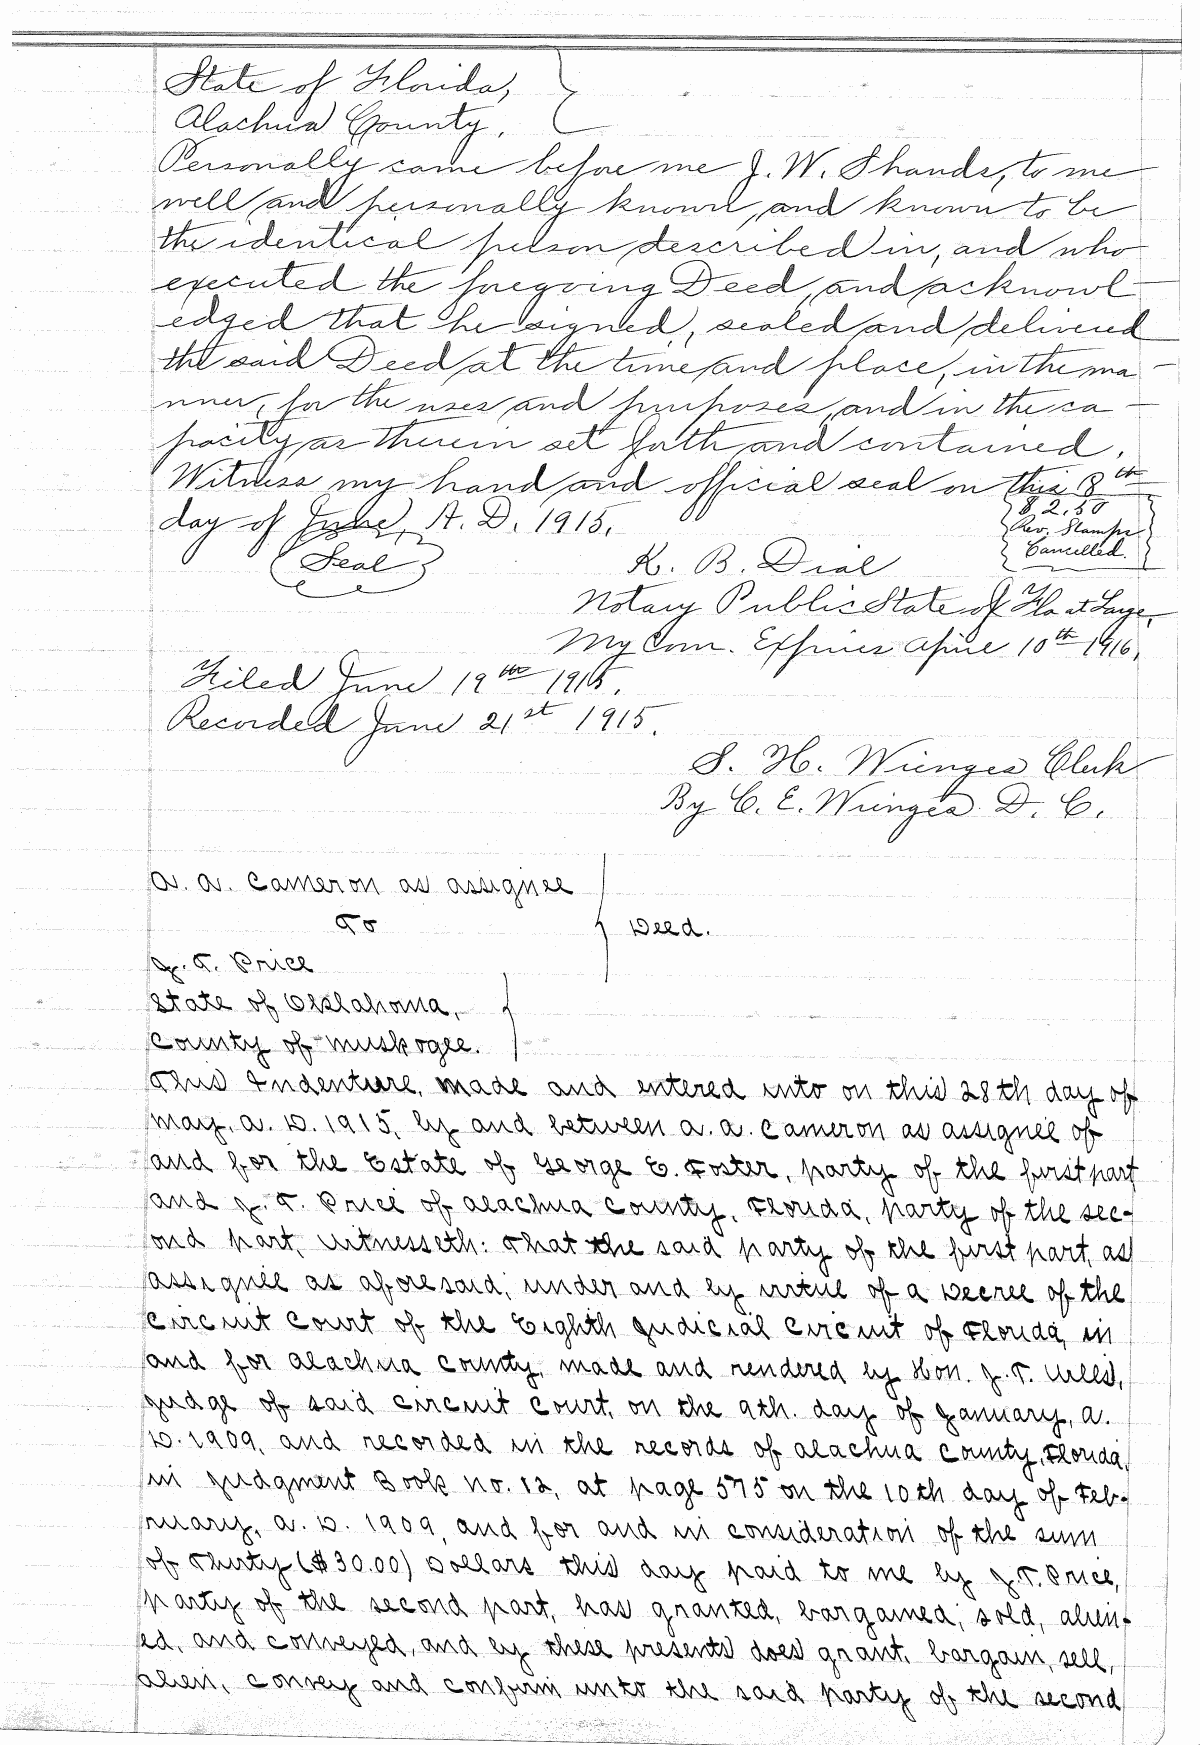 State of Florida,
Alachua County.
Personally came before me J. W. Shands, to me
well and personally known, and known to be
the identical person described in, and who
executed the foregoing Deed, and acknowl-
edged that he signed, sealed and delivered
the said Deed at the time and place, in the ma-
nner, for the uses and purposes, and in the ca-
pacity as therein set forth and contained.
Witness my hand and official seal on this 8th
day of June, A. D. 1915.
$2.50
Rev. Stamps
Cancelled.
(Seal)
K. B. Dial
Notary Public State of Fla at Large,
My Com. Expires April 10th 1916.
Filed June 19th 1915.
Recorded June 21st 1915.
S. H. Wienges Clerk
By C. E. Wienges D. C.
A. A. Cameron as assignee
To
Deed.
J. T. Price
State of Oklahoma,
County of Muskogee.
This Indenture, made and entered into on this 28th day of
May, A. D. 1915, by and between A. A. Cameron as assignee of
and for the Estate of George E. Foster, party of the first part
and J. T. Price of Alachua County, Florida, party of the sec-
ond part, Witnesseth: That the said party of the first part, as
assignee as aforesaid, under and by virtue of a Decree of the
Circuit Court of the Eighth Judicial Circuit of Florida, in
and for Alachua County, made and rendered by Hon. J. T. Wills,
Judge of said Circuit Court, on the 9th. day of January, A.
D. 1909, and recorded in the records of Alachua County, Florida,
in Judgment Book No. 12, at page 575 on the 10th day of Feb-
ruary, A. D. 1909, and for and in consideration of the sum
of Thirty ($30.00) Dollars this day paid to me by J. T. Price,
party of the second part, has granted, bargained, sold, alien-
ed, and conveyed, and by these presents does grant, bargain, sell,
alien, convey and confirm unto the said party of the second